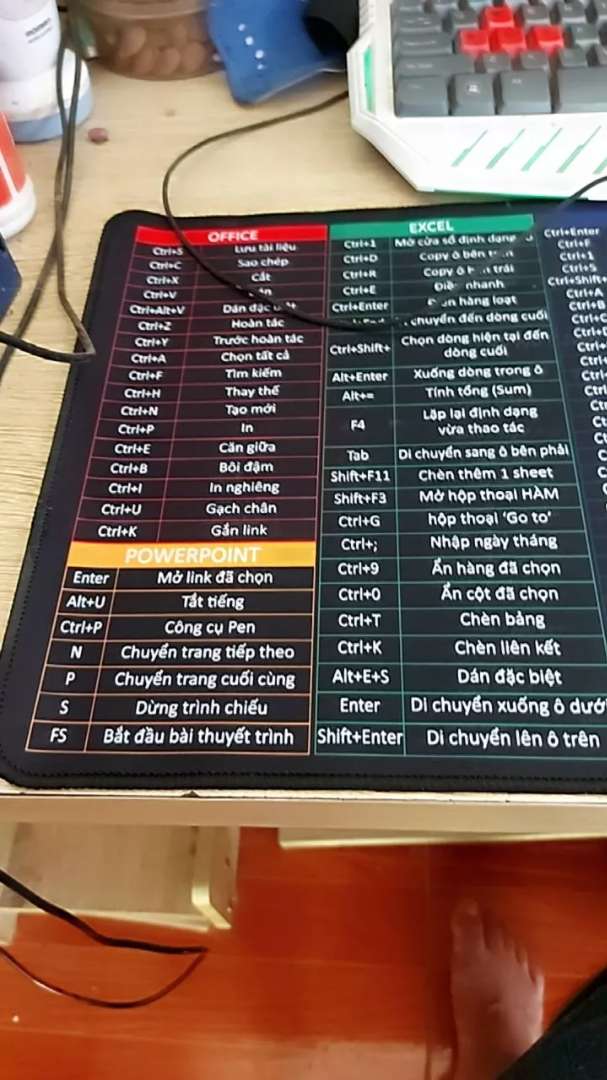 OFFICE
Ctrl+S Lưu tài liệu
Ctrl+C Sao chép
Ctrl+X Cắt
Ctrl+V
Ctrl+Alt+V Dán đặc
Ctrl+Z Hoàn tác
Ctrl+Y Trước hoàn tác
Ctrl+A Chọn tất cả
Ctrl+F Tìm kiếm
Ctrl+H Thay thế
Ctrl+N Tạo mới
Ctrl+P In
Ctrl+E Căn giữa
Ctrl+B Bôi đậm
Ctrl+I In nghiêng
Ctrl+U Gạch chân
Ctrl+K Gắn link
POWERPOINT
Enter Mở link đã chọn
Alt+U Tắt tiếng
Ctrl+P Công cụ Pen
N Chuyển trang tiếp theo
P Chuyển trang cuối cùng
S Dừng trình chiếu
FS Bắt đầu bài thuyết trình
EXCEL
Ctrl+1 Mở cửa sổ định dạng
Ctrl+D Copy ô bên
Ctrl+R Copy ô trái
Ctrl+E nhanh
Ctrl+Enter hàng loạt
chuyển đến dòng cuối
Ctrl+Shift+ Chọn dòng hiện tại đến
dòng cuối
Alt+Enter Xuống dòng trong ô
Alt+= Tính tổng (Sum)
F4 Lặp lại định dạng
vừa thao tác
Tab Di chuyển sang ô bên phải
Shift+F11 Chèn thêm 1 sheet
Shift+F3 Mở hộp thoại HÀM
Ctrl+G hộp thoại 'Go to'
Ctrl+; Nhập ngày tháng
Ctrl+9 Ẩn hàng đã chọn
Ctrl+0 Ẩn cột đã chọn
Ctrl+T Chèn bảng
Ctrl+K Chèn liên kết
Alt+E+S Dán đặc biệt
Enter Di chuyển xuống ô dưới
Shift+Enter Di chuyển lên ô trên
Ctrl+Enter
Ctrl+F
Ctrl+1
Ctrl+S
Ctrl+Shift+
Ctrl+A